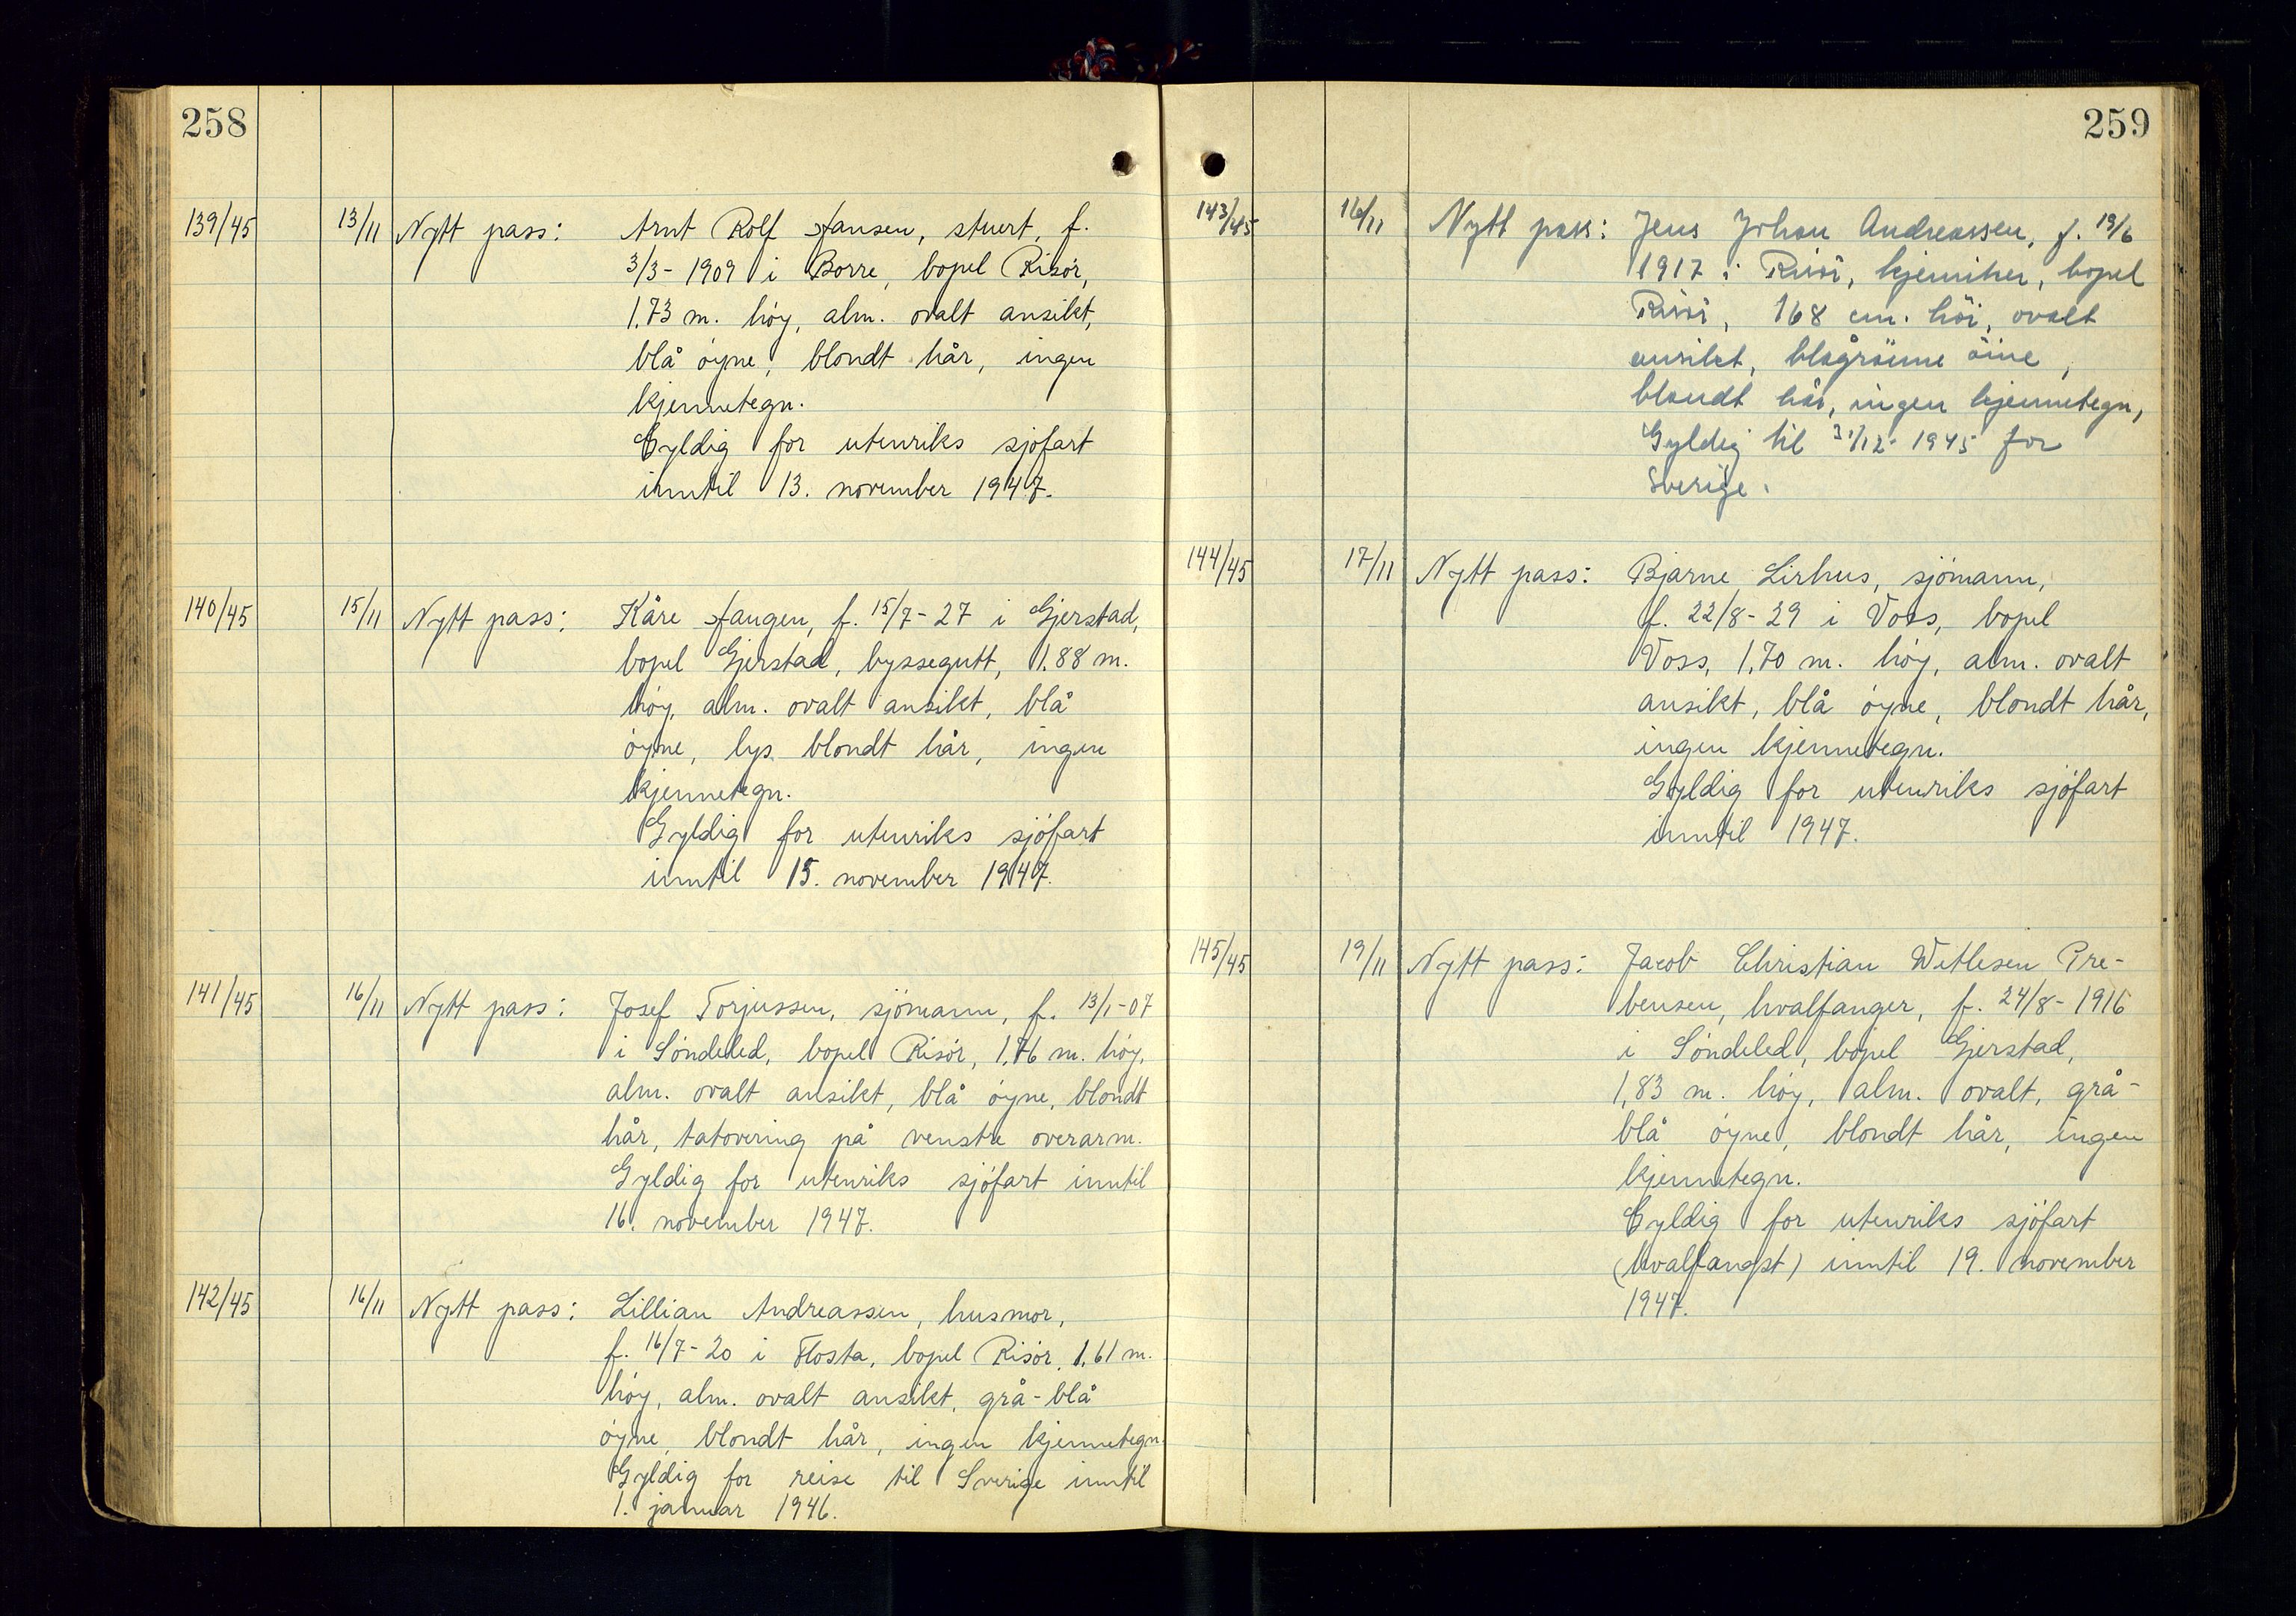 258
139/45 13/11 Nytt pass: Arnt Rolf Hansen, stuert, f.
3/3-1909 i Borre, bopel Risór,
1.73 m. hóy, alm. ovalt ansikt,
blå óyne, blondt hår, ingen
kjennetegn.
Gyldig for utenriks sjófart
inntil 13. november 1947.
140/45 15/11 Nytt pass: Kåre Haugen, f. 15/7-27 i Gjerstad,
bopel Gjerstad, byssegutt, 1.88 m.
hóy, alm. ovalt ansikt, blå
óyne, lys blondt hår, ingen
kjennetegn.
Gyldig for utenriks sjófart
inntil 15. november 1947.
141/45 16/11 Nytt pass: Josef Torjussen, sjómann, f. 13/1-07
i Sóndeled, bopel Risór, 1,76 m. hóy,
alm. ovalt ansikt, blå óyne, blondt
hår, tatovering på venstre overarm.
Gyldig for utenriks sjófart inntil
16. november 1947.
142/45 16/11 Nytt pass: Lillian Andreassen, husmor,
f. 16/7-20 i Flosta, bopel Risór, 1.61 m.
hóy, alm. ovalt ansikt, grå-blå
óyne, blondt hår, ingen kjennetegn.
Gyldig for reise til Sverige inntil
1. januar 1946.
259
143/45 16/11 Nytt pass: Jens Johan Andreassen, f. 19/6
1917 i Risör, kjemiker, bopel
Risör, 168 cm. höi, ovalt
ansikt, blågrönne öine,
blondt hår, ingen kjennetegn,
Gyldig til 31/12-1945 for
Sverige.
144/45 17/11 Nytt pass: Bjarne Lirhus, sjómann,
f. 22/8-29 i Voss, bopel
Voss, 1,70 m. hóy, alm. ovalt
ansikt, blå óyne, blondt hår,
ingen kjennetegn.
Gyldig for utenriks sjófart
inntil 1947.
145/45 19/11 Nytt pass: Jacob Christian Wetlesen Pre-
bensen, hvalfanger, f. 24/8-1916
i Sóndeled, bopel Gjerstad,
1,83 m. hóy, alm. ovalt, grå-
blå óyne, blondt hår, ingen
kjennetegn.
Gyldig for utenriks sjófart
(hvalfangst) inntil 19. november
1947.